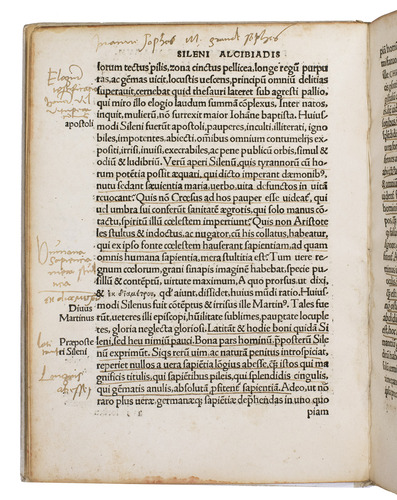 SILENI ALCIBIADIS
lorum tectus pilis, zona cinctus pellicea, longe regū purpu
ras, ac gēmas uicit, locustis uescens, principū omniū delitias
superauit, cernebat quid thesauri lateret sub agresti pallio,
qui miro illo elogio laudum summā cōplexus, Inter natos,
inquit, mulierū, nō surrexit maior Iohāne baptista. Huius
modi Sileni fuerūt apostoli, pauperes, inculti, illiterati, igno
apostoli
biles, impotentes, abiecti, oībus omnium contumelijs ex
positi, irrisi, inuisi, execrabiles, ac pene publicū orbis, simul &
odiū & ludibriū. Verū aperi Silenū, quis tyrannorū cū ho
rum potētia possit æquari, qui dicto imperant dæmonibꝰ,
nutu sedant sæuientia maria, uerbo uita defunctos in uitā
reuocant. Quis nō Crœsus ad hos pauper esse uideat, qui
uel umbra sui conferūt sanitatē ægrotis, qui solo manus cō
tactu, spiritū illū cœlestem impertiunt. Quis non Aristote
les stultus & indoctus, ac nugator, cū his collatus, habeatur,
qui ex ipso fonte cœlestem hauserant sapientiam, ad quam
omnis humana sapientia, mera stultitia est. Tum uere re
gnum cœlorum, grani sinapis imaginē habebat, specie pu
sillū & contēptū, uirtute maximum, A quo prorsus, ut dixi,
& ἐκ διαμέτρου, qd' aiunt, dissidet, huius mūdi ratio. Huius
Diuus
modi Silenus fuit cōtēptus & irrisus ille Martinꝰ. Tales fue
Martinus
rūt, ueteres illi episcopi, hūilitate sublimes, paupertate locuple
tes, gloria neglecta gloriosi. Latitāt & hodie boni quidā Si
Præposte
leni, sed heu nimiū pauci. Bona pars hominū, præposterū Sile
ri Sileni
nū exprimūt. Siqs rerū uim, ac naturā penitus introspiciat,
reperiet nullos a uera sapiētia lōgius abesse, qȝ istos qui ma
gnificis titulis, qui sapiētibus pileis, qui splendidis cingulis,
qui gēmatis anulis, absolutā ꝓfitent' sapientiā. Adeo, ut nō
raro plus ueræ, germanæqȝ sapiētiæ depʳhendas in uno quo
piam